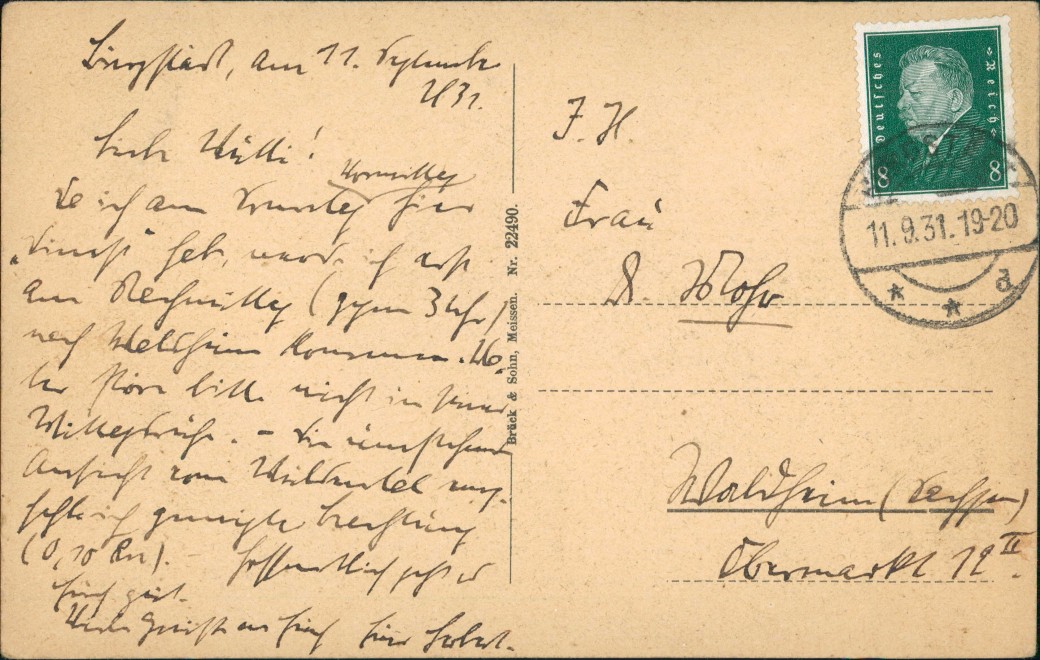 Burgstädt, am 11. Septembr
1931.
Liebe Mutti!
Da ich am Sonntag Vormittag hier
„Dienst“ hab, werde ich erst
am Nachmittag (gegen 3 Uhr)
nach Waldheim kommen.
bitte nicht in
Mittagsruhe. – Die umstehende
Ansicht vom
ich geneigter Beachtung
(0,10 Rm). – Hoffentlich geht es
Euch gut.
Viele Grüße an Euch Euer
Brück & Sohn, Meissen. Nr. 22490.
Deutsches Reich
8 8
11.9.31.19-20
* * d
F. H.
Frau
D. Mohr
Waldheim (Sachsen)
Obermarkt 12 II.